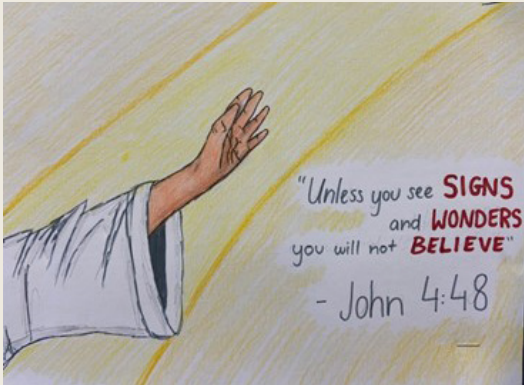 "Unless you see SIGNS
and WONDERS
you will not BELIEVE"
- John 4:48